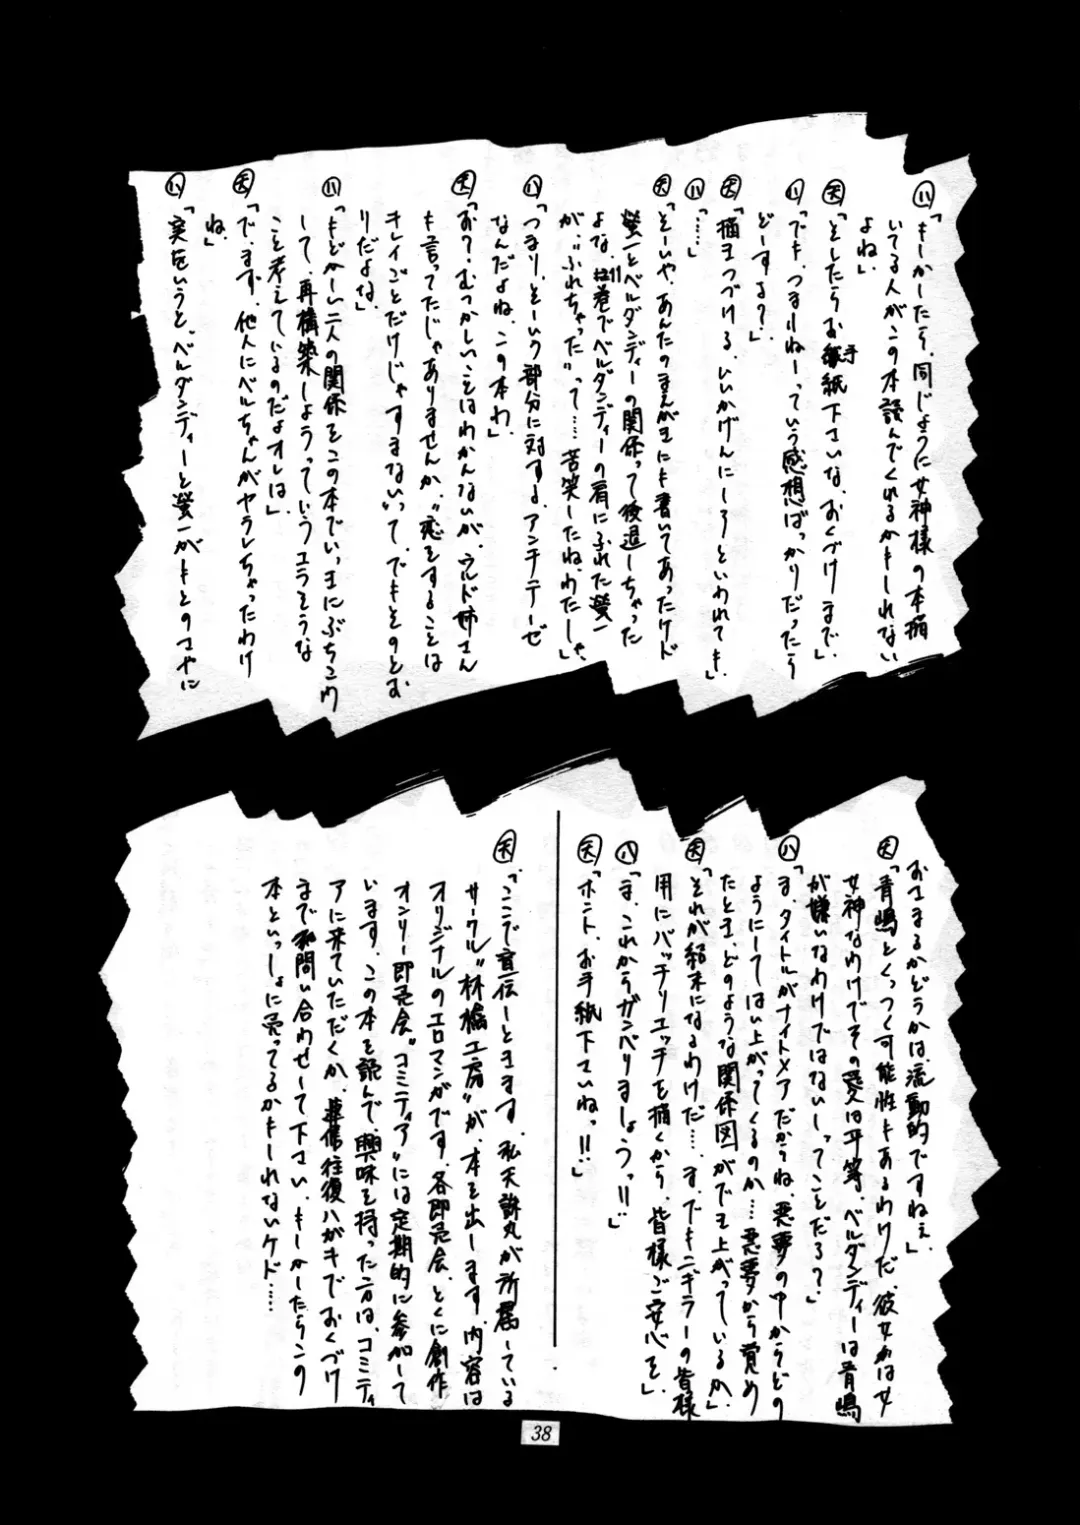 ㈧「もしかしたら、同じように女神様の本描
いてる人がこの本読んでくれるかもしれない
よね」
㊝「そしたらお手紙下さいな、おくづけまで」
㈧「でも、つまんねーっていう感想ばっかりだったら
どーする?」
㊝「描きつづける、いいかげんにしろといわれても」
㈧「……」
㊝「そーいや、あんたのまえがきにも書いてあったけド
螢一とベルダンディーの関係って後退しちゃった
よな、巻でベルダンディーの肩にふれた螢一
が、〝ふれちゃった〟って……苦笑したね、わたしゃ」
㈧「つまり、そーいう部分に対する、アンチテーゼ
なんだよね、この本わ」
㊝「お?、むつかしいことはわかんないが、ウルド姉さん
も言ってたじゃありませんか、〝恋をすることは
キレイごとだけじゃすまない〟って、でもそのとお
りだよな」
㈧「もどかしい二人の関係をこの本でいっきにぶちこわ
して、再構築しようっていうエラそうな
こと考えているのだよオレは」
㊝「で、まず、他人にベルちゃんがヤラレちゃったわけ
ね」
㈧「実をいうと、ベルダンディーと螢一がもとのさやに
おさまるかどうかは、流動的ですねぇ」
㊝「青嶋とくっつく可能性もあるわけだ、彼女かは女
女神なわけでその愛は平等、ベルダンディーは青嶋
が嫌いなわけではないしってことだろ?」
㈧「ま、タイトルがナイトメアだからね、悪夢の中からどの
ようにしてはい上がってくるのか…悪夢から覚め
たとき、どのような関係図ができ上がっているか」
㊝「それが結末になるわけだ…、ま、でもニギラーの皆様
用にバッチリエッチを描くから、皆様ご安心を」
㈧「ま、これからガンバりましょうっ!!」
㊝「ホント、お手紙下さいねっ!!」
㊝「ここで宣伝しときます、私天誅丸が所属している
サークル〝林檎工房〟が、本を出します、内容は
オリジナルのエロマンガです、各即売会、とくに創作
オンリー即売会〝コミティア〟には定期的に参加して
います、この本を読んで、興味を持った方は、コミティ
アに来ていただくか、往復ハガキでおくづけ
まで問い合わせして下さい、もしかしたらこの
本といっしょに売ってるかもしれないケド……
38